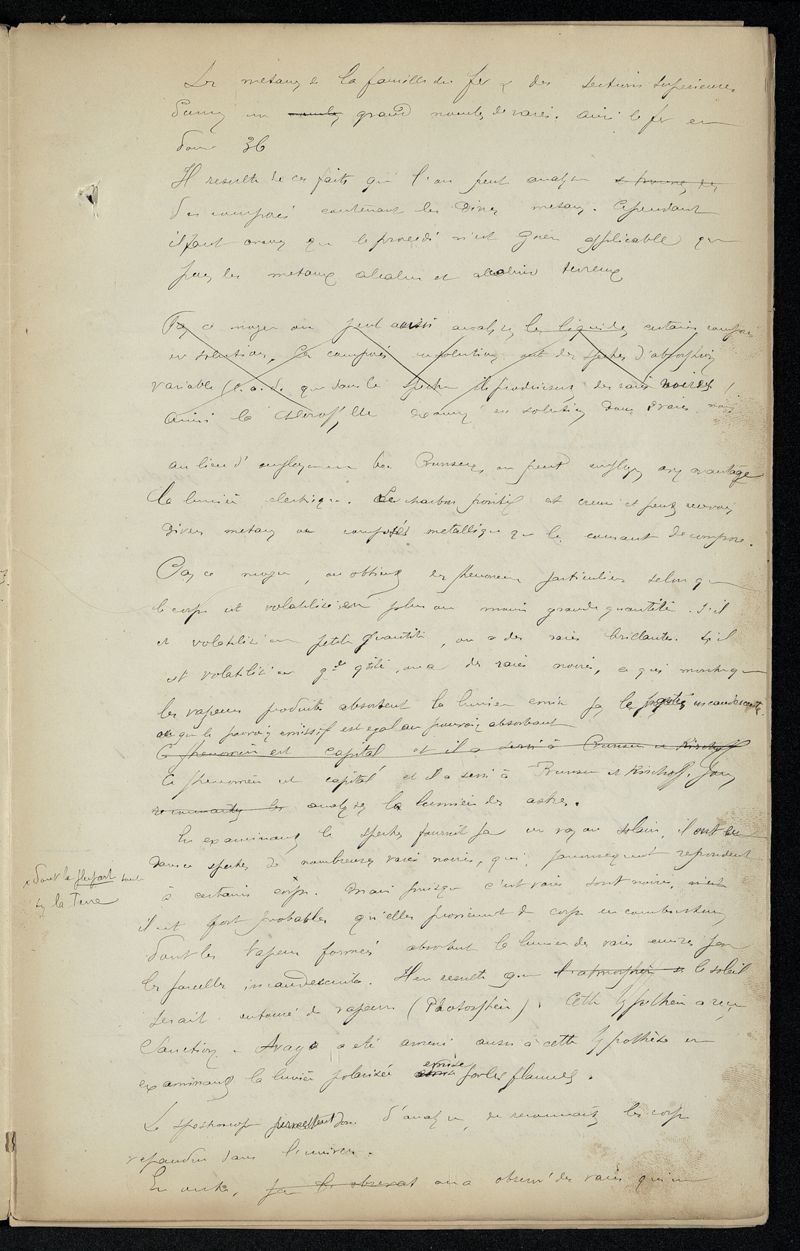 Les metaux de la famille du fer & des sections superieures
donne un grand nombre de raies. ainsi le fer en
donne 36
Il resulte de ces faits que l'on peut analyser
des composés contenant les divers metaux. Cependant
il faut avouer que le procedé n'est guere applicable que
pour les metaux alcalins et alcalino terreux
Par ce moyen on peut aussi analyser les liquides, certains composés
en solution. Ces composés en solution ont des spectres d'absorption
variable (c. a. d. que dans le spectre ils produisent des raies noires)
Ainsi la chlorophylle en solution donne raies noires
au lieu d' employer un bec Bunsen, on peut employer avec avantage
la lumière electrique. Le charbon positif est creusé et peut recevoir
divers metaux ou composés metalliques que le courant decompose.
Par ce moyen, on obtient un phenomene particulier selon que
le corps est volatilisé en plus ou moins grande quantité. S'il
est volatilisé en petite quantité, on a des raies brillantes. S'il
est volatilisé en gde qtité, on a des raies noires, ce qui montre que
les vapeurs produites absorbent la lumiere emise par les parties incandescentes
ou que le pouvoir emissif est egal au pouvoir absorbant
Ce phenomène est capital et il a servi à Bunsen et Kirchoff
Ce phenomène est capital et il a servi à Bunsen et Kirchoff pour
reconnaitre les analyser la lumière des astres.
En examinant le spectre fournit par un rayon solaire, ils ont eu
dans ce spectre de nombreuses raies noires, qui, par consequent repondent
x dont la plupart sont
sur la Terre
à certains corps. Mais puisque c'est raies sont noires,
il est fort probable qu'elles proviennent de corps en combustion
dont les vapeurs formées absorbent la lumiere des raies emises par
les parcelles incandescentes. Il en resulte que l'atmosphère le soleil
serait entouré de vapeurs (Photosphère). Cette hypothèse a reçu
sanction. Arago a été amené aussi à cette hypothèse en
examinant la lumière polarisée emise par les flammes.
Le spectroscope permettent donc d'analyser, de reconnaitre les corps
repandus dans l'univers.
En outre, par le observat on a observé des raies qui ne